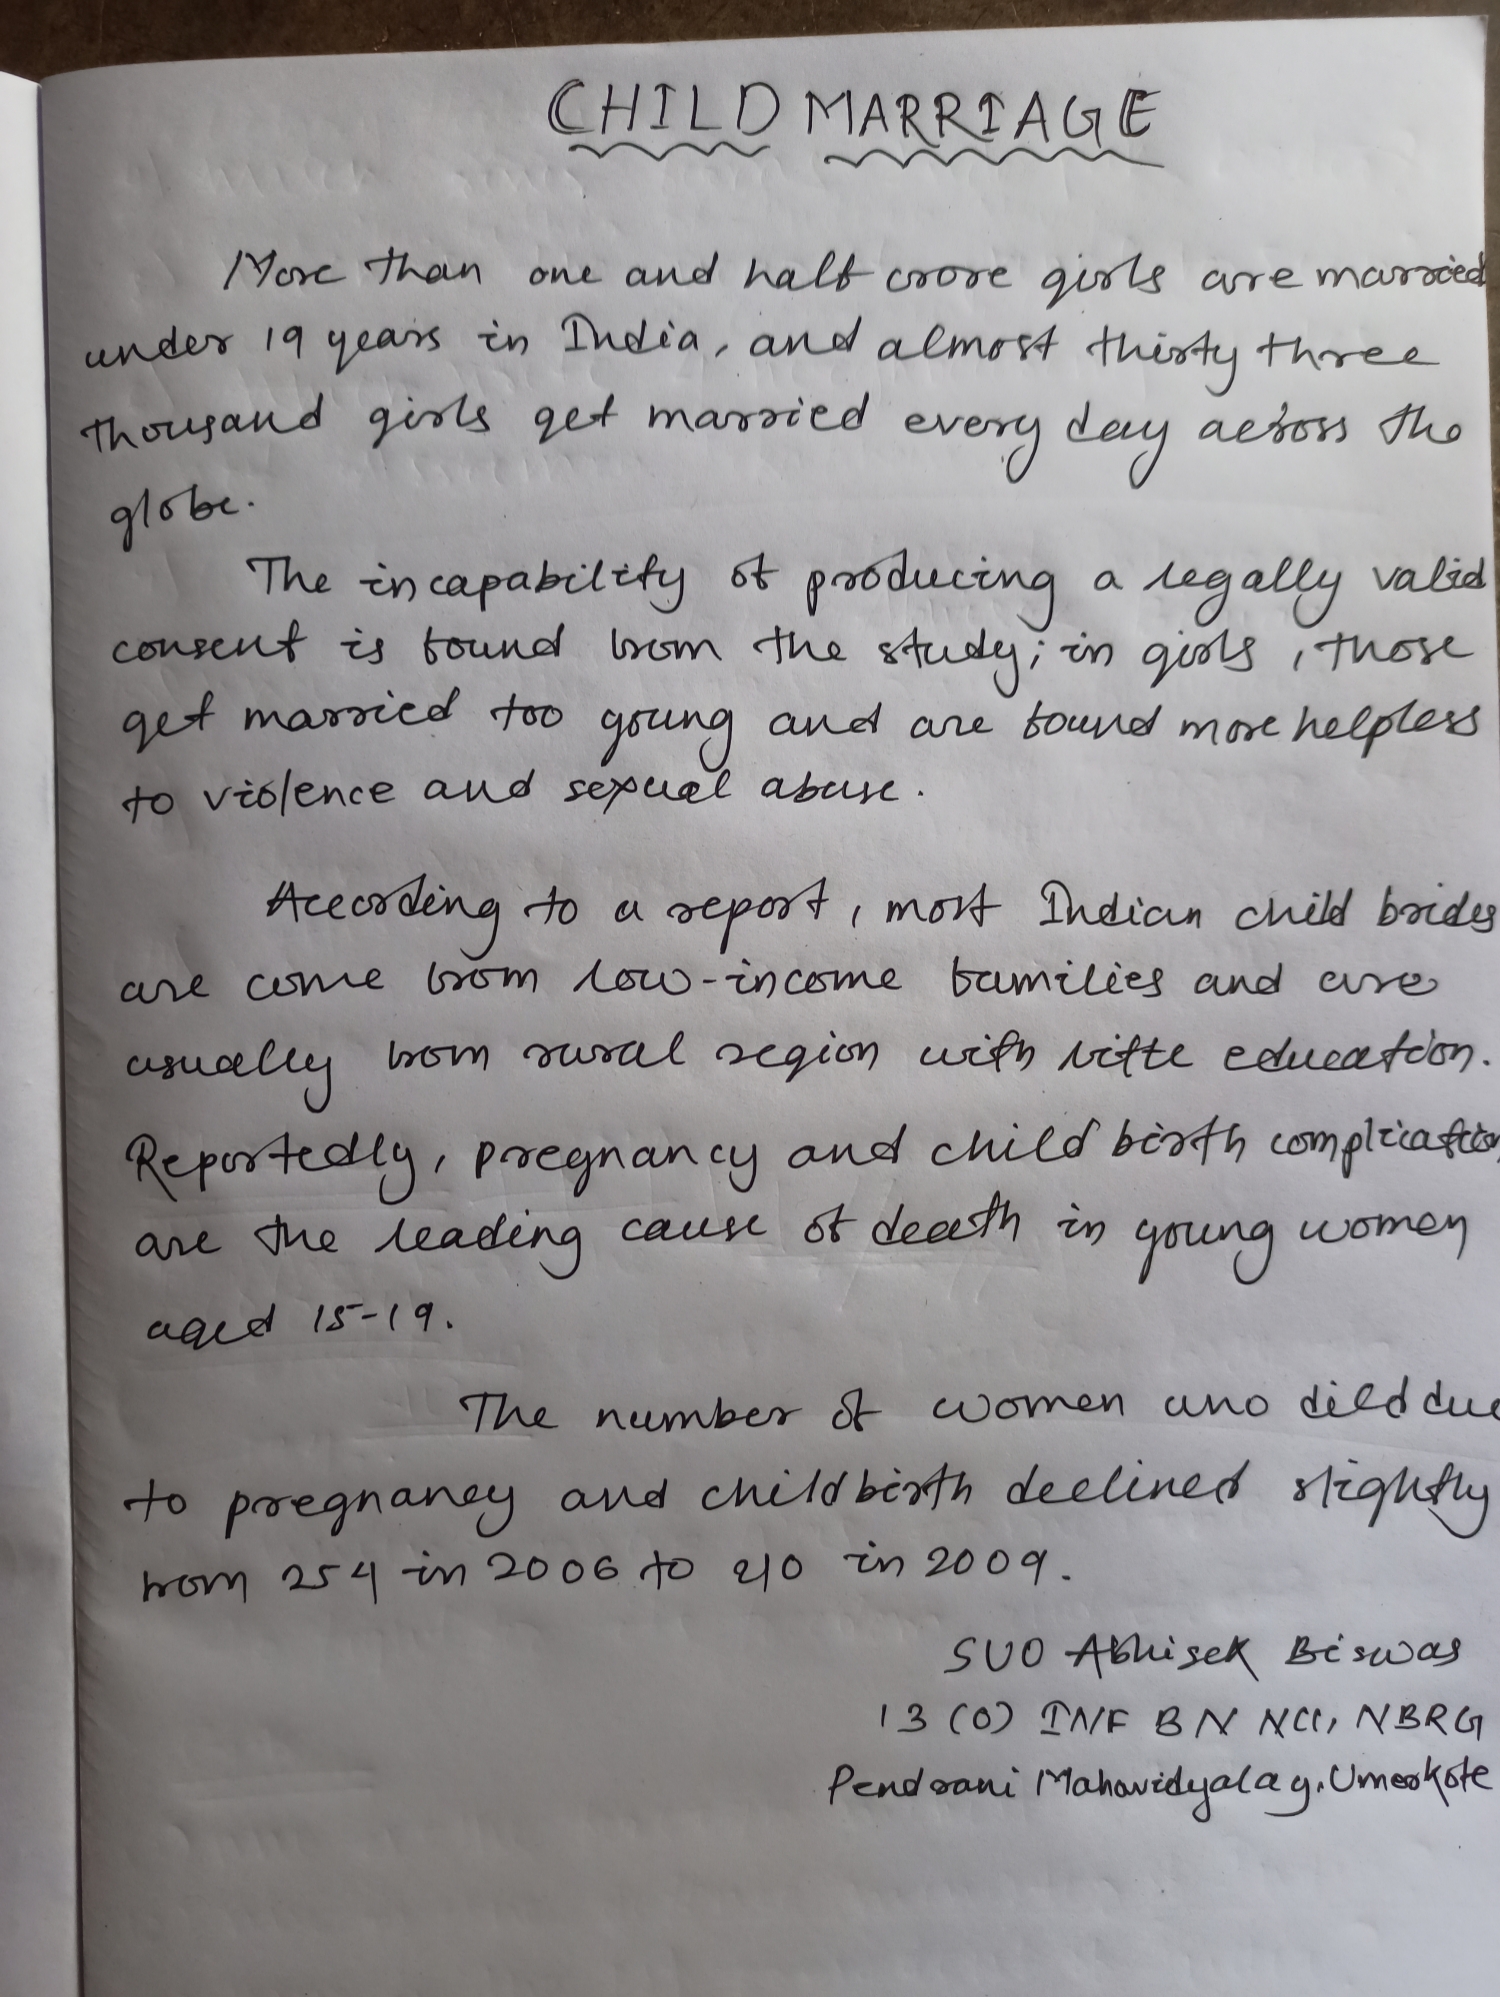 CHILD MARRIAGE
More than one and half crore girls are married
under 19 years in India, and almost thirty three
thousand girls get married every day across the
globe.
The incapability of producing a legally valid
consent is found from the study; in girls, those
get married too young and are found more helpless
to violence and sexual abuse.
According to a report, most Indian child brides
are come from low-income families and are
usually from rural region with little education.
Reportedly, pregnancy and child birth complication
are the leading cause of death in young women
aged 15-19.
The number of women who died due
to pregnancy and childbirth declined slightly
from 254 in 2006 to 210 in 2009.
SUO Abhisek Biswas
13 (O) INF BN NCC, NBRG
Pendrani Mahavidyalay, Umerkote